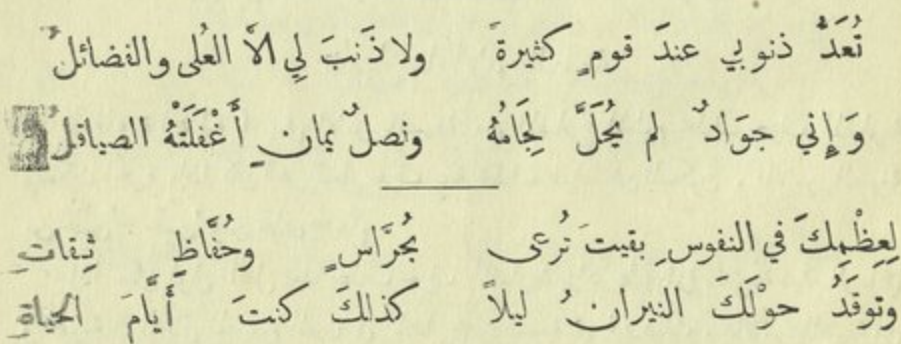 تُعَدُّ ذنوبي عندَ قومٍ كثيرةً ولا ذَنبَ لِي الاَّ العُلى والفضائلُ
وَإِني جوَادٌ لم يُحَلَّ لِجَامُهُ ونصلٌ يمانٍ أَغْفَلَتْهُ الصياقلُ
لِعِظْمِكَ في النفوسِ بقيتَ تُرعى بحُرَّاسٍ وحُفَّاظٍ ثِقاتِ
وتوقَدُ حوْلَكَ النيرانُ ليلاً كذلكَ كنتَ أَيَّامَ الحياةِ